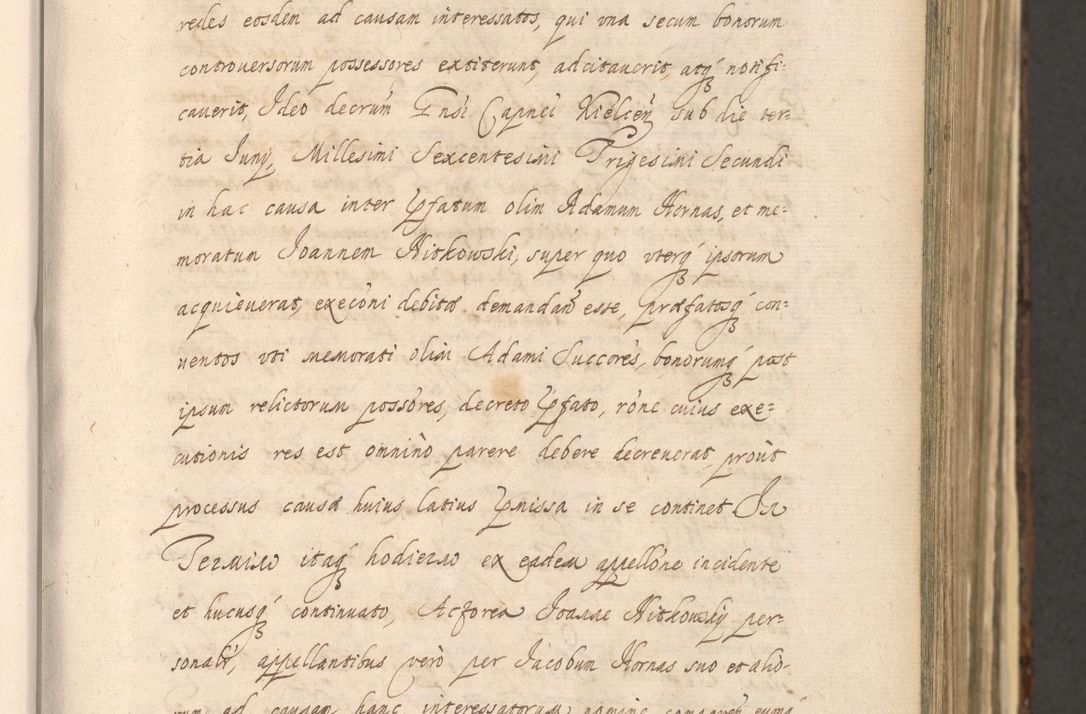 redes eosdem ad causam interessatos, qui vna secum bonorum
controuersorum possessores extiterunt, adcitauerit, atq́ notifi:
cauerit, Ideo decrum̃ Ensi Capnei Kielceñ sub die ter:
tia Junij Millesimi Sexcentesimi Trigesimi Secundi
in hac causa inter Pfatum olim Adamum Hornas, et me:
moratum Joannem Nitkowski, super quo vterq́ ipsorum
acquieuerat, execoni debitæ demandañ esse, præfatosq́ con:
uentos vti memorati olim Adami Succores, bonorumq́ post
ipsum relictorum possores, decreto Pfato, rone cuius exe:
cutionis res est omnino parere debere decreuerat, prout
processus causæ huius latius Pmissa in se continet In
Termino itaq́ hodierno ex eadem appellone incidente
et hucusq́ continuato, Actorea Joanne Nitkowskij per:
sonalr, appellantibus vero per Jacobum Hornas suo et alio:
rum ad causam hanc interessatorum nomine comparen̄ eumq́